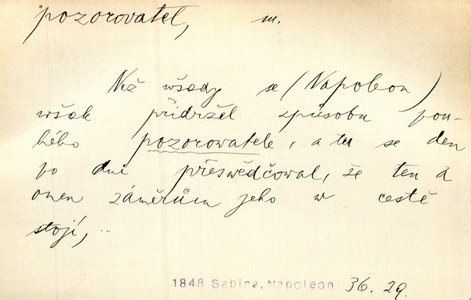 pozorovatel, m.
Než všady se (Napoleon)
wšak přidržel spůsobu pou-
hého pozorovatele, a tu se den
po dni přeswědčoval, že ten a
onen záměrům jeho w cestě
stojí,..
1848 Sabina, Napoleon 36.29.